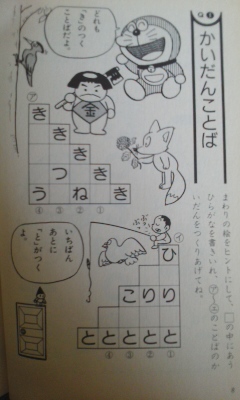 かいだんことば
まわりの絵をヒントにして、□の中にあう
ひらがなを書きいれ、㋐～㋓のことばのか
いだんをつくりあげてね。
どれも
「き」のつく
ことばだよ。
金
㋐
き
き
き
つ き
う ね き
④ ③ ② ①
ぷっ
ぷっ
㋑
ひ
こ り り
と と と と と
④ ③ ② ①
いちばん
あとに
「と」がつく
よ。